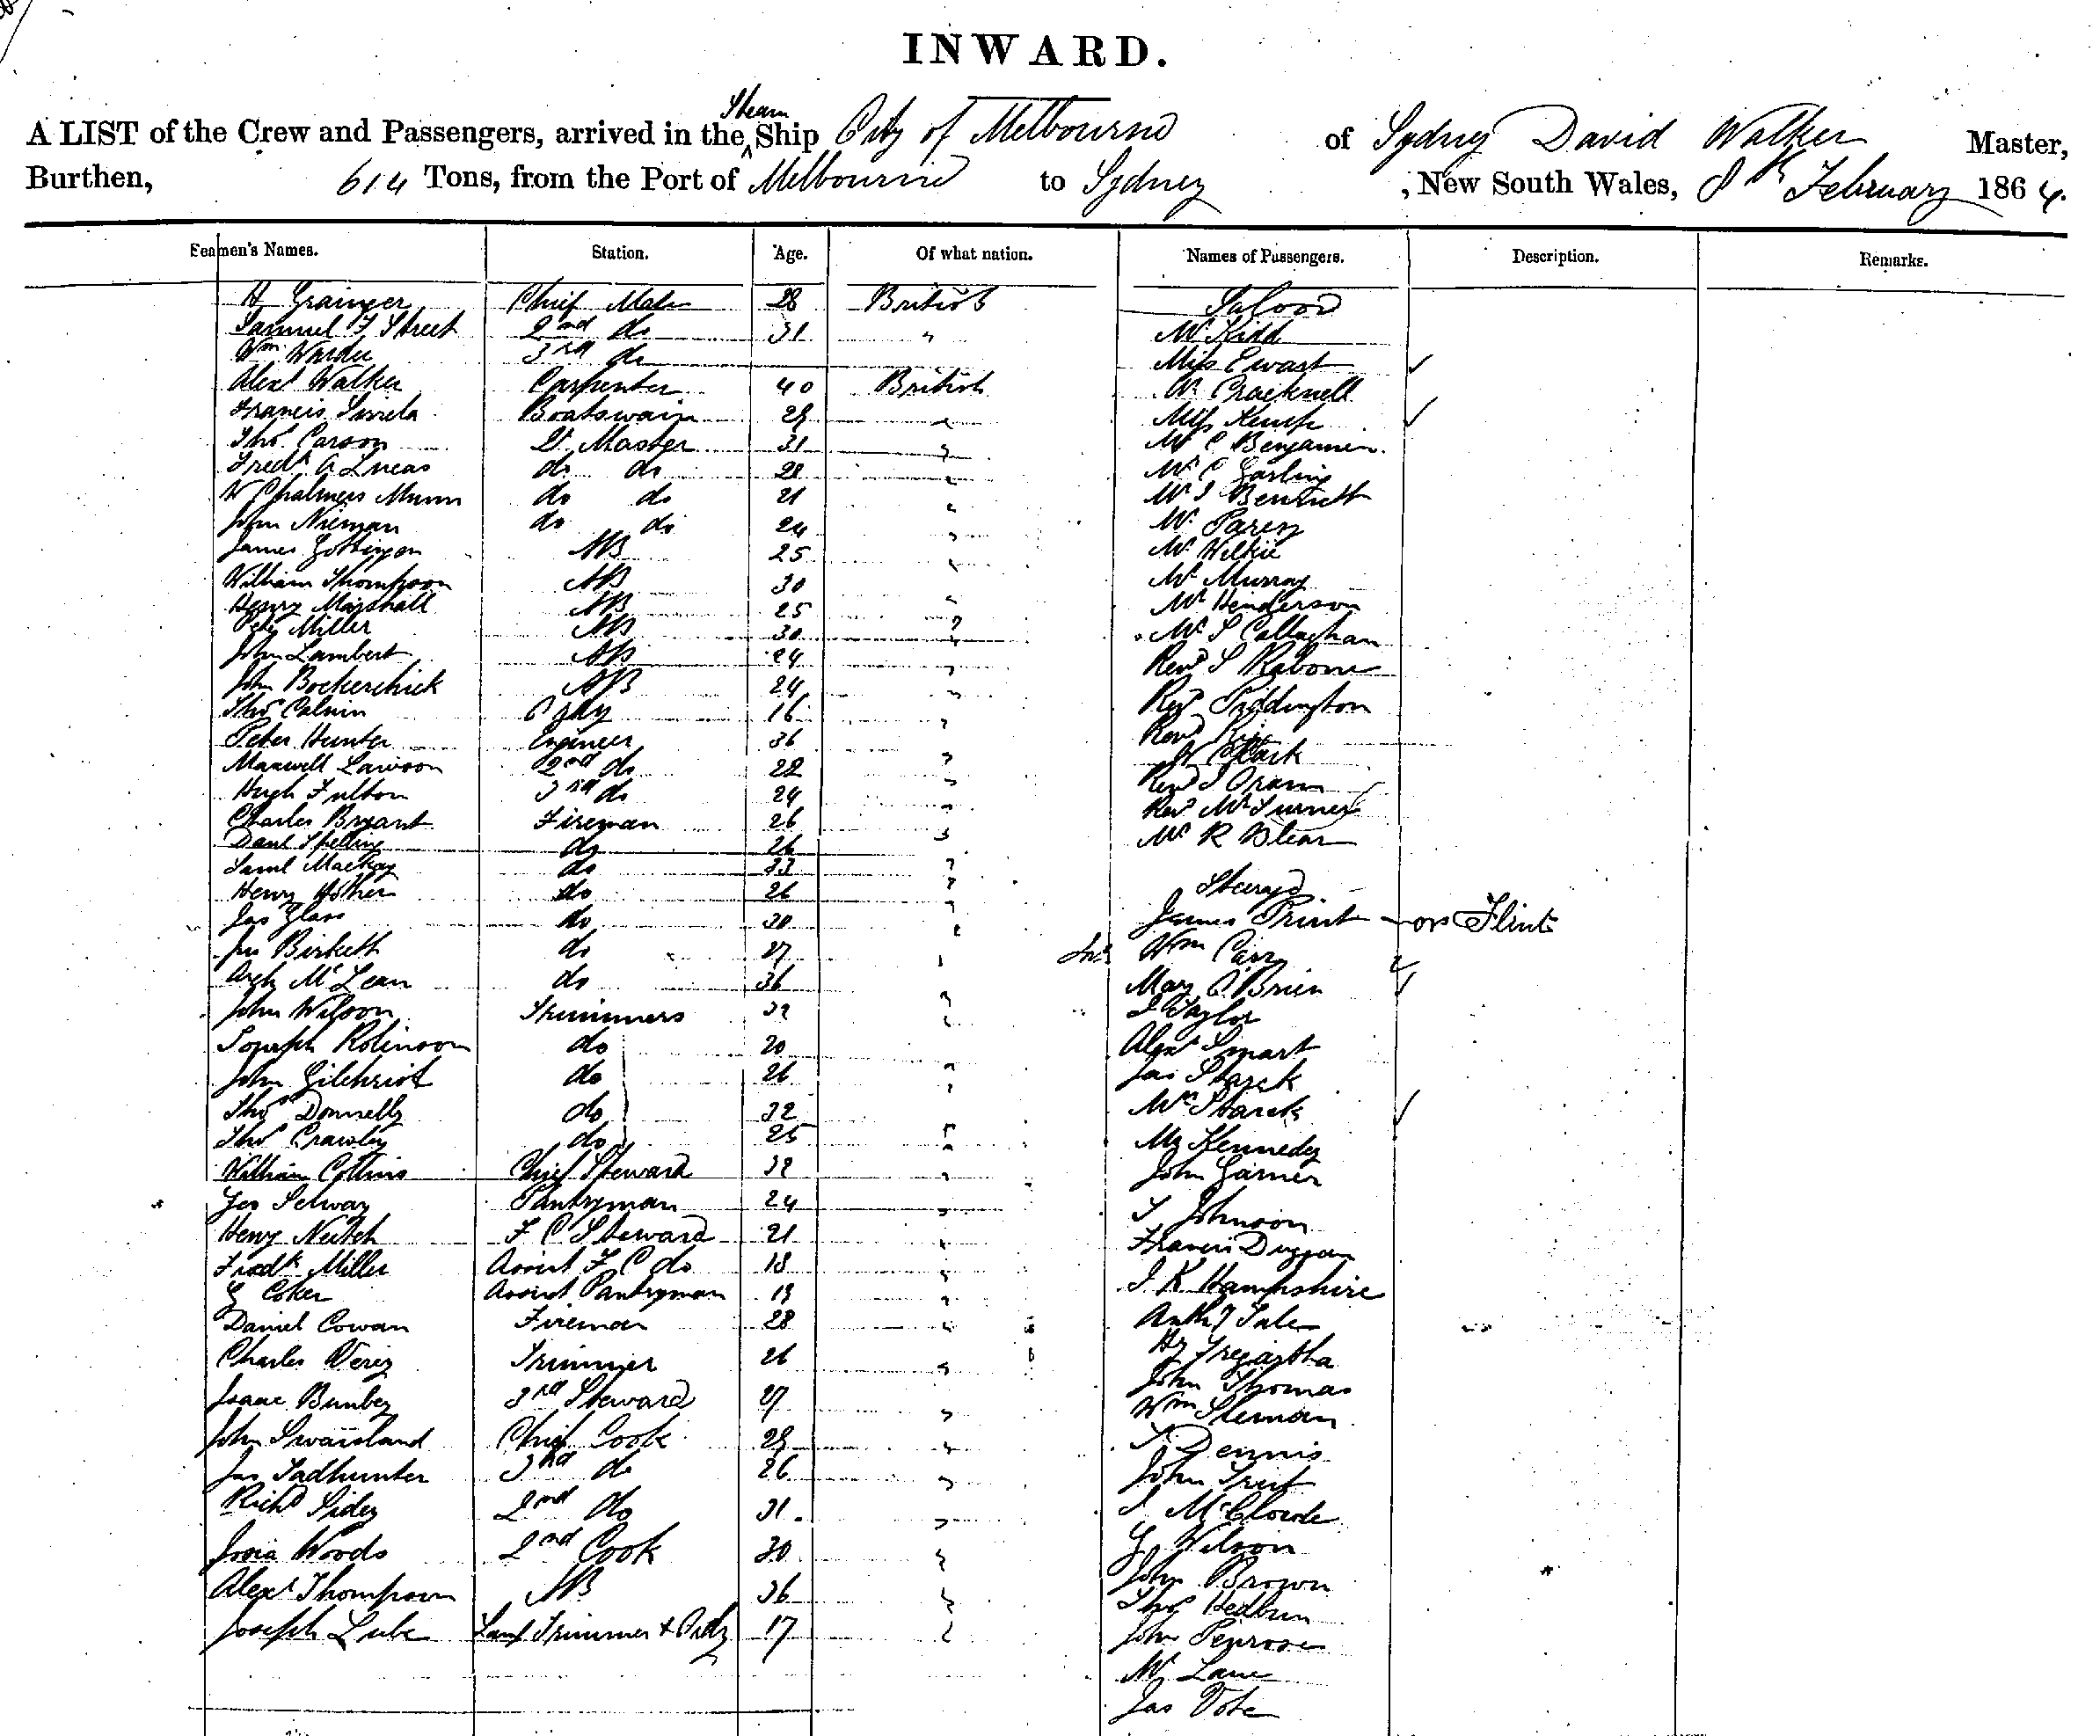 INWARD.
Steam
A LIST of the Crew and Passengers, arrived in the Ship City of Melbourne of Sydney David Walker Master,
Burthen, 614 Tons, from the Port of Melbourne to Sydney, New South Wales, 8th February 1864.
Seamen's Names. Station. Age. Of what nation. Names of Passengers. Description. Remarks.
H Grainger Chief Mate 28 British Saloon
Samuel F Street 2nd do 31 " Mr Kidd
Wm 3rd do Miss Ewart ✓
Alexr Walker Carpenter 40 British W. Cracknell
Francis Boatswain 29 " Miss Kemp ✓
Thos Carson Qr Master 31 " Mr C Benjamin
Fredk A Lucas do do 28 " Mr C Garling
W Chalmers Munn do do 21 " Mr J Bennett
John Nieman do do 24 " Mr
James AB 25 " Mr Wilkie
William Thompson AB 30 Mr Murray
Henry Marshall AB 25 " Mr Henderson
Miller AB 30 " Mr S Callaghan
John Lambert AB 24 " Revd S Rabone
John AB 24 " Revd Piddington
Thos Calvin 16 " Revd
Peter Hunter Engineer 36 " W Clark
Maxwell Lawson 2nd do 22 " Revd J Oram
Hugh Fulton 3rd do 24 " Revd Mr Turner
Charles Bryant Fireman 26 " Mr R Blear
Danl Spelling do 26
Saml Mackay do 33 " Steerage
Henry do 26 " James Print or Flint
Jas Glass do 30 " Wm Carr
Jno Birkett do 27 " Mary O'Brien ✓
Arch McLean do 36 " J Taylor
John Wilson Trimmers 32 " Alexr Smart
Joseph Robinson do 20 Jas Starck
John Gilchrist do 26 " Mrs Starck ✓
Thos Donnelly do 32 " Kennedy
Thos Crawley do 25 " John Garner
William Collins Chief Steward 32 " T Johnson
Geo Selway Pantryman 24 " Francis Duggan
Henry F C Steward 21 " J K Hampshire
Fredk Miller Assist F C do 18 "
G Coker Assist Pantryman 19 " Hy Tregartha
Daniel Cowan Fireman 28 " John Thomas
Charles Trimmer 26 " Wm Sleman
Isaac Bunbey 3rd Steward 27 " T Dennis
John Swaisland Chief Cook 29 " John
Jas Tadhunter 3rd do 26 "
Richd Sidey 2nd do 31. " G Wilson
Woods 2nd Cook 30 " John Brown
Alexr Thompson AB 36 " Thos
Joseph Lamp Trimmer & 17 " John Penrose
Mr Lane
Jas